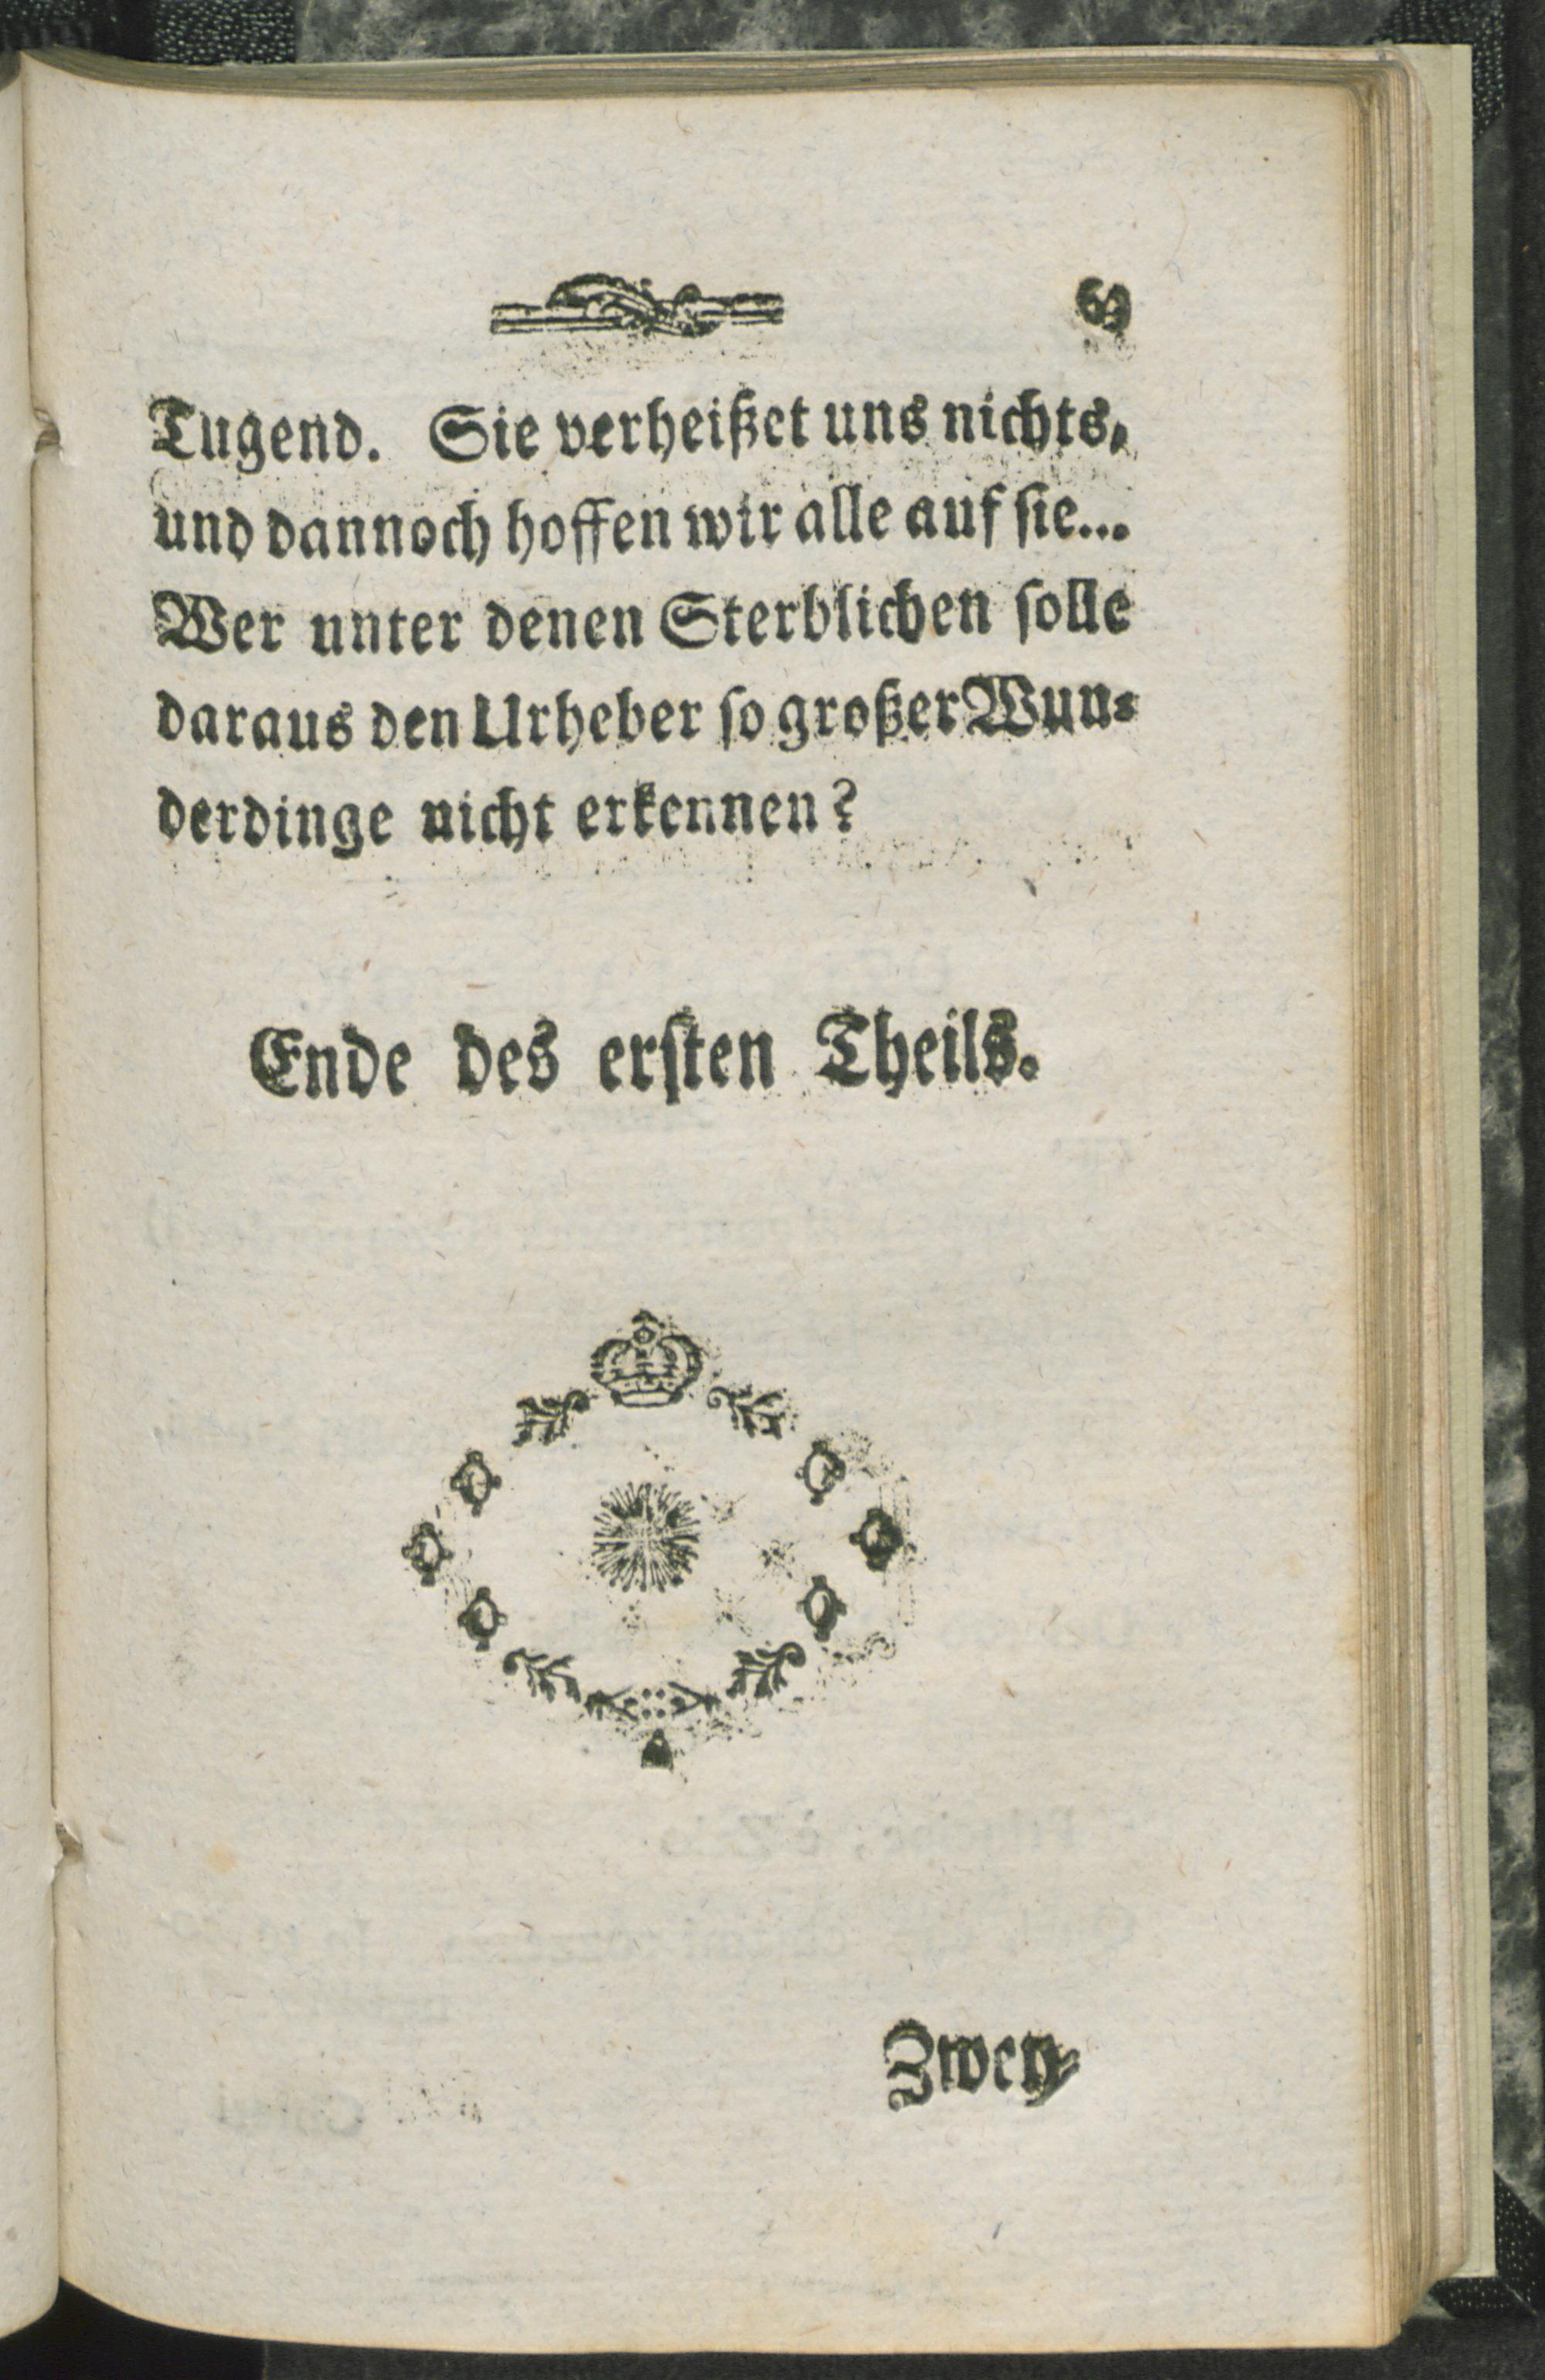 69
Tugend. Sie verheißet uns nichts,
und dannoch hoffen wir alle auf ſie...
Wer unter denen Sterblichen ſolle
daraus den Urheber ſo großer Wun⸗
derdinge nicht erkennen?
Ende des erſten Theils.
Zwey⸗